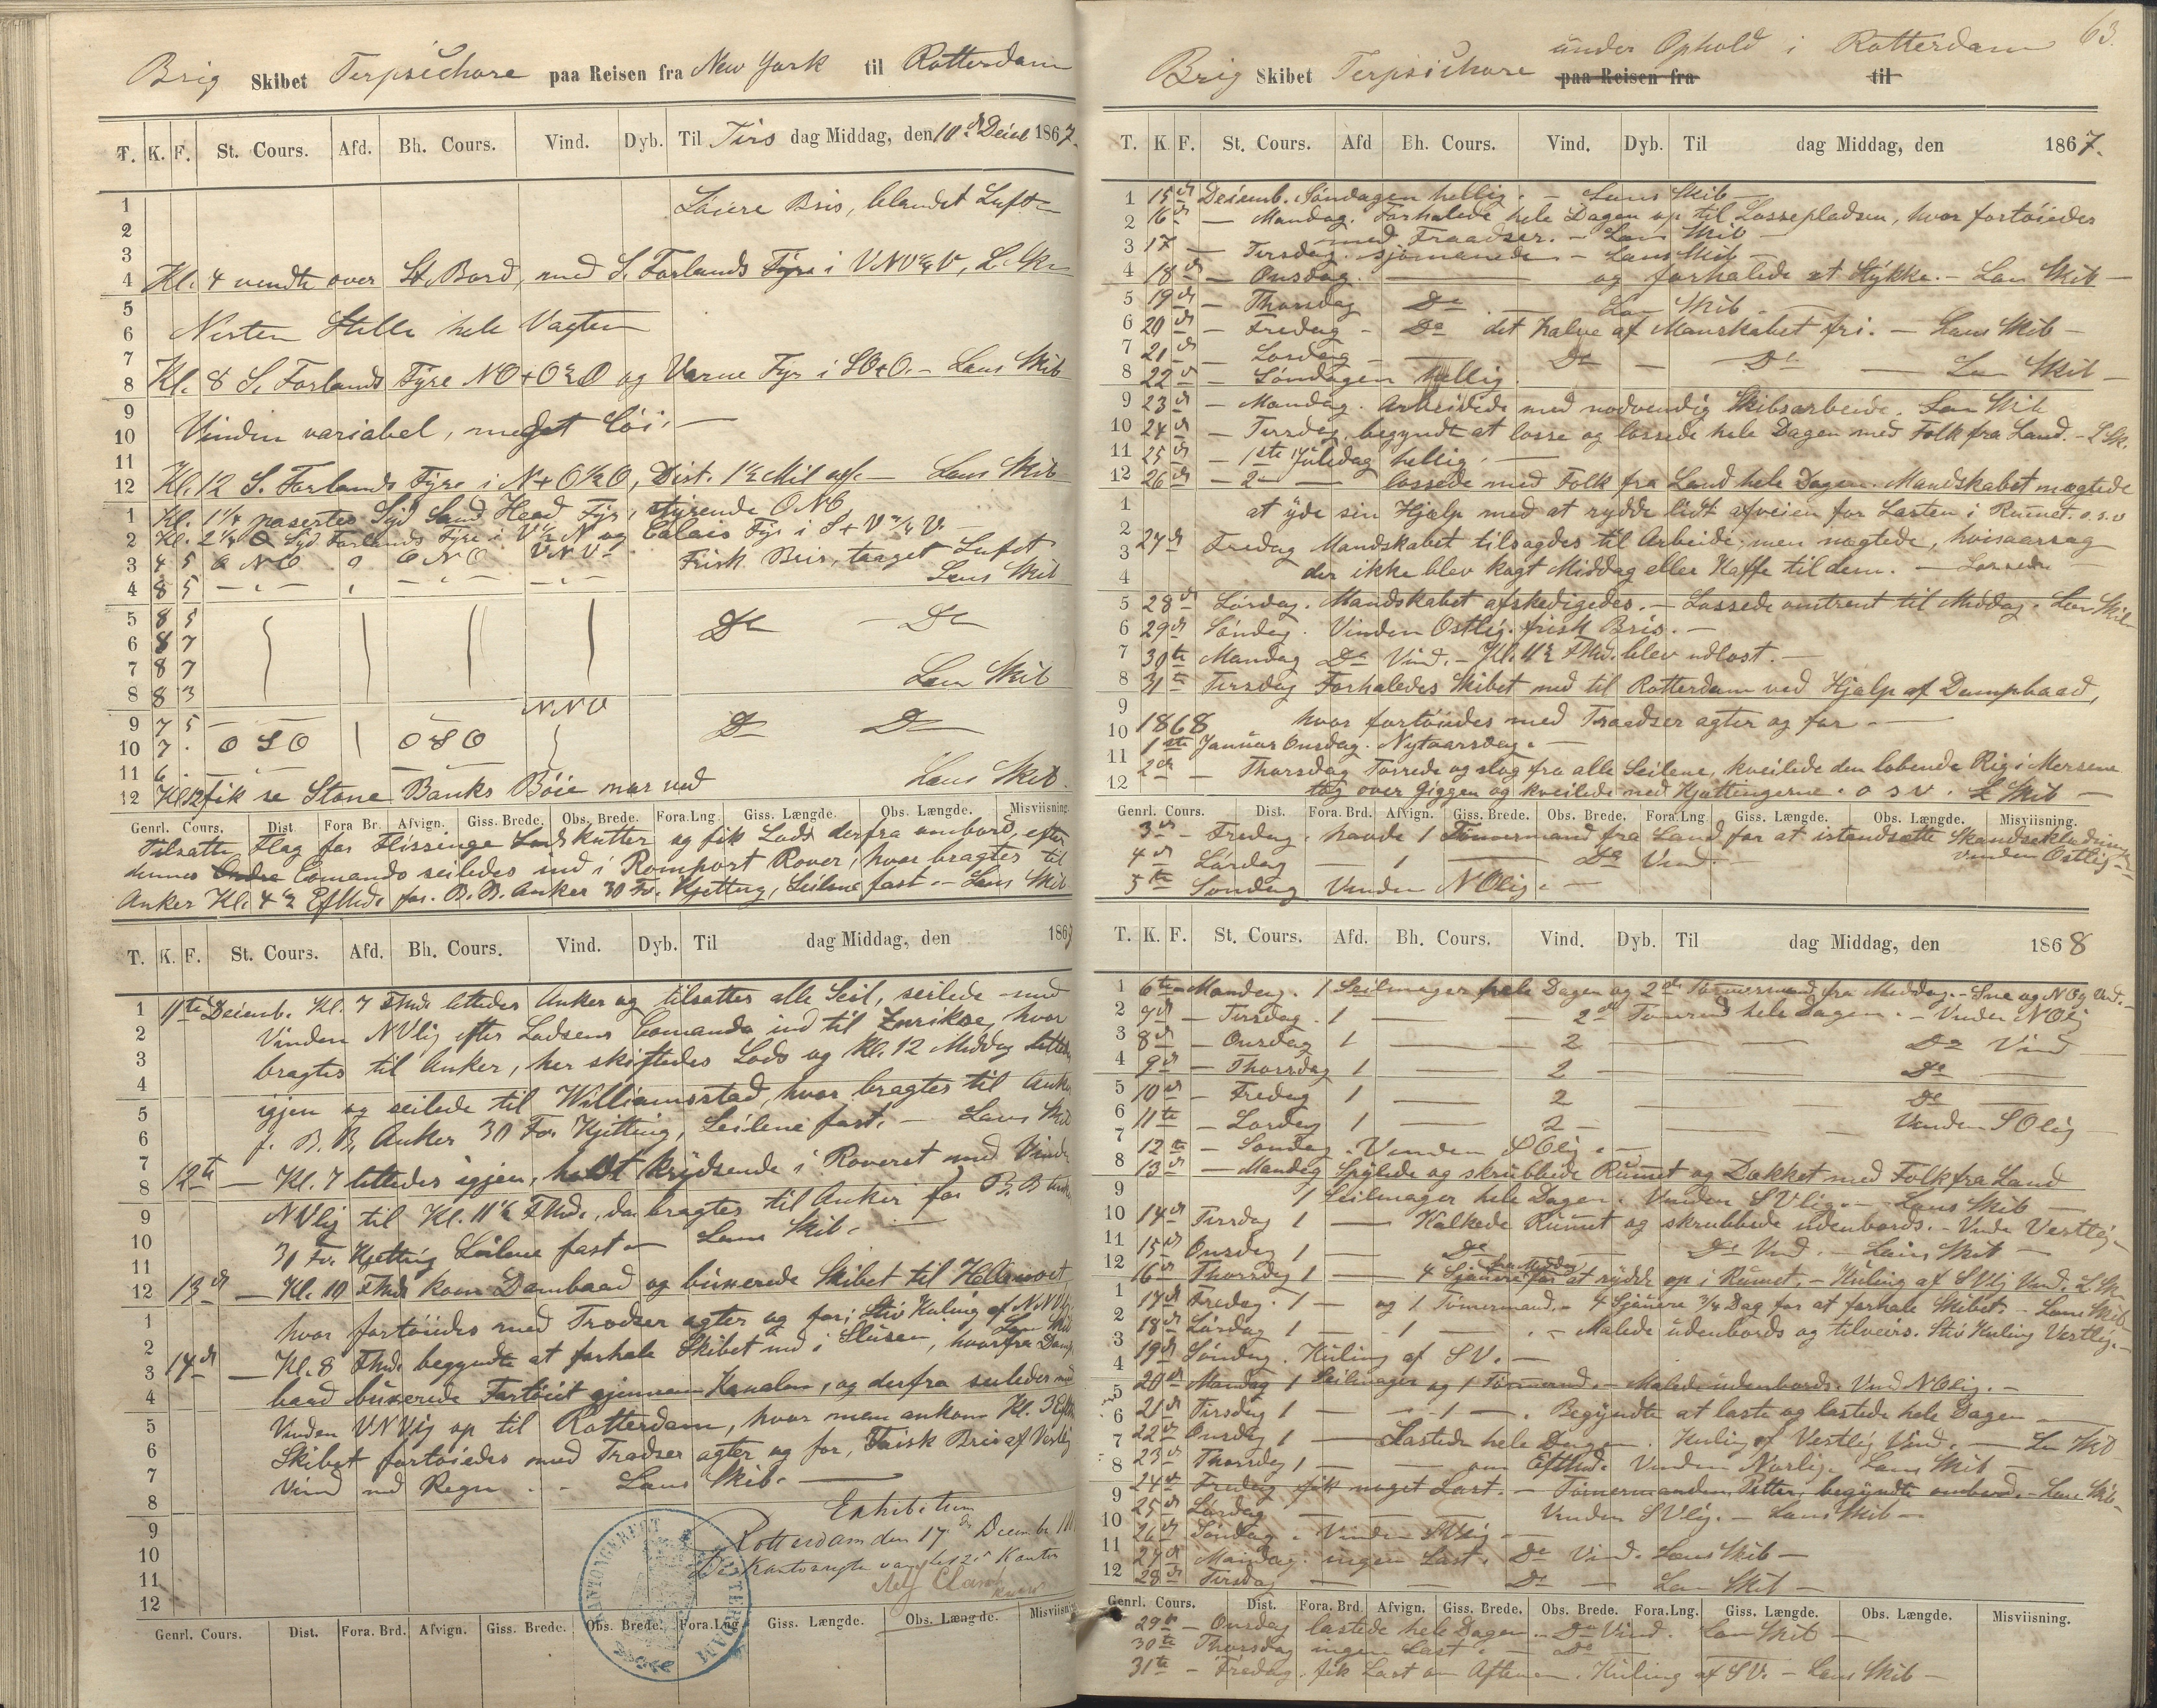 Brig Skibet Terpsichore paa Reisen fra New York til Rotterdam
T. K. F. St. Cours. Afd. Bh. Cours. Vind. Dyb. Til Tirs dag Middag, den 10de Decbr 1867.
1 Løiere Bris, blandet Luft
2
3
4 Kl. 4 vendte over St. Bord, med S. Forlands Fyre i VNV½V, L. Sk.
5
6 Nesten Stille hele Vagten
7
8 Kl. 8 S. Forlands Fyre NO+O½O og Varne Fyr i SO+O. - Lens Skib
9
10 Vinden variabel, meget Løi. —
11
12 Kl. 12 S. Forlands Fyre i N+O½O, Dist. 1½ Mil aff. — Lens Skib
1 Kl. 1¼ paserter Syd Sand Head Fyr, styrende ONO
2 Kl. 2¼ Syd Forlands Fyre i V½N og Calais Fyr i S+V¾V. —
3 4 5 ONO 0 ONO VNV Frisk Bris, taaget Luft
4 8 5 Lens Skib
5 8 5 Do — Do
6 8 7
7 8 7
8 8 3 Lens Skib
9 7 5 NNV
10 7 . OSO OSO Do Do
11 6 .
12 Kl 12 fik se Stone Banks Bøie nær ved Lens Skib.
Genrl. Cours. Dist. Fora Br. Afvign. Giss. Brede. Obs. Brede. Fora.Lng. Giss. Længde. Obs. Længde. Misviisning.
Tilsatte Flag for Flissinge Lods kutter og fik Lods derfra ombord, efter
dennes Comando seiledes ind i Romport Rover, hvor bragtes til
Anker Kl. 4½ Eftmd. for. B.B. Anker 30 Fv. Kjetting, Seilene fast. - Lens Skib
T. K. F. St. Cours. Afd. Bh. Cours. Vind. Dyb. Til dag Middag, den 1867
1 11te Decemb. Kl. 7 Fmd. lettedes Anker og tilsattes alle Seil, seilede med
2 Vinden NVlig efter Lodsens Comando ind til Zurikse, hvor
3 bragtes til Anker, her skiftedes Lods og Kl. 12 Middag lettedes
4 igjen og seilede til Williamsstad, hvor bragtes til Anker
5 f. B.B. Anker 30 Fv. Kjetting, Seilene fast. — Lens Skib
6
7 12te — Kl. 7 lettedes igjen, holdt krydsende i Roveret med Vinden
8
9 NVlig til Kl. 11½ Fmd., da bragtes til Anker for B.B. Anker
10 30 Fv. Kjetting Seilene fast — Lens Skib. —
11
12 13de — Kl. 10 Fmd. kom Dambaad og buxerede Skibet til Helevoet
1 hvor fortøiedes med Trodser agter og for; Stiv Kuling af NNVlig
2 Lens Skib
3 14de — Kl. 8 Fmd. begyndte at forhale Skibet ind i Slusen, hvorfra Damp
4 baad buxerede Fartøiet gjennem Kanalen, og derfra seiledes med
5 Vinden VNVlig op til Rotterdam, hvor man ankom Kl. 3 Eftm
6 Skibet fortøiedes med Tradser agter og for, Frisk Bris af Vestlig
7 Vind med Regn. - Lens Skib. —
8 Exhibitum
9 Rotterdam den 17 de December
10 De Kantonregter van het 2e Kanton
11
12
KANTONGEREGT ROTTERDAM
Genrl. Cours. Dist. Fora. Brd. Afvign. Giss. Brede. Obs. Brede. Fora.Lng. Giss. Længde. Obs. Længde. Misviisning
63.
Brig Skibet Terpsichore under Ophold i Rotterdam
paa Reisen fra til
T. K. F. St. Cours. Afd Bh. Cours. Vind. Dyb. Til dag Middag, den 1867.
1 15de Decemb. Søndagen hellig. - Lens Skib —
2 16de — Mandag. Forhalede hele Dagen op til Lossepladsen, hvor fortøiedes
med Traadser. - Lens Skib
3 17 — Tirsdag. — Lens Skib —
4 18de — Onsdag. — og forhalede et Stykke. - Lens Skib —
5 19de — Thorsdag Do — Lens Skib —
6 20de — Fredag - Do det halve af Manskabet fri. — Lens Skib —
7 21de — Lørdag — Do — Do — Lens Skib —
8 22de — Søndagen hellig.
9 23de — Mandag. Arbeidede med nødvendig Skibsarbeide. Lens Skib
10 24de — Tirsdag, begyndt at losse og lossede hele Dagen med Folk fra Land. - L Sk.
11 25de — 1ste Juledag hellig. —
12 26de — 2den — lossede med Folk fra Land hele Dagen. Mandskabet nægtede
1 at yde sin Hjælp med at rydde lidt afveien for Lasten i Rummet. o.s.v
2 27de Fredag Mandskabet tilsagdes til Arbeide, men nægtede, hvisaarsag
3 der ikke blev kogt Middag eller Kaffe til dem. — Lossede
4
5 28de Lørdag. Mandskabet afskedigedes. - Lossede omtrent til Middag. Lens Skib
6 29de Søndag. Vinden Ostlig. frisk Bris. —
7 30te Mandag Do Vind. - Kl. 11½ Fmd. blev udlost. —
8 31te Tirsdag Forhaledes Skibet ned til Rotterdam ved Hjælp af Dampbaad,
9
10 1868 hvor fortøiedes med Traadser agter og for. —
11 1ste Januar Onsdag. Nytaarsdag. —
12 2de — Thorsdag Tørrede og slog fra alle Seilene, kveilede den løbende Rig i Mersene
tog over Giggen og kveilede ned Kjættingerne. o s v. L Skib —
Genrl. Cours. Dist. Fora. Brd. Afvign. Giss. Brede. Obs. Brede. Fora.Lng Giss. Længde. Obs. Længde. Misviisning.
3de — Fredag. havde 1 Tømmermand fra Land for at istandsætte Skandseklædningen
4de Lørdag — 1 — Do Vind. — Vinden Ostlig. -
5te Søndag Vinden NOlig. —
T. K. F. St. Cours. Afd. Bh. Cours. Vind. Dyb. Til dag Middag, den 1868
1 6te Mandag. 1 Seilmager hele Dagen og 2de Tømmermænd fra Middag. - Sne og NOlig Vind. -
2 7de — Tirsdag. 1 — 2de Tømmermænd hele Dagen. - Vinden NOlig
3 8de — Onsdag 1 — 2 — Do Vind
4 9de — Thorsdag 1 — 2 — Do —
5 10de — Fredag 1 — 2 — Do —
6 11te — Lørdag 1 — 2 — Vinden SOlig
7 12te — Søndag. Vinden SOlig. —
8 13de — Mandag Spylede og skrubbede Rumet og Dækket med Folk fra Land
9 1 Seilmager hele Dagen. Vinden SVlig. - Lens Skib —
10 14de Tirsdag 1 — Kalkede Rumet og skrubbede udenbords. - Vinden Vestlig. -
11 15de Onsdag 1 — Do — Do Vind. - Lens Skib —
12 16de Thorsdag 1 — 4 Sjauere fra Middag for at rydde op i Rumet. - Kuling af SVlig Vind. L Sk.
1 17de Fredag. 1 — og 1 Tømermand. - 4 Sjauere ¾ Dag for at forhale Skibet. - Lens Skib -
2 18de Lørdag 1 — 1 — . - Malede udenbords og tilveirs. Stiv Kuling Vestlig. -
3 19de Søndag. Kuling af SV. —
4 20de Mandag 1 Seilmager og 1 Tømermd. - Malede udenbords. Vind NOlig. -
5 21de Tirsdag 1 — 1 — . Begyndte at laste og lastede hele Dagen —
6 22de Onsdag 1 — Lastede hele Dagen. Kuling af Vestlig Vind. — Lens Skib
7 23de Thorsdag 1 — om Eftmd. Vinden Norlig. Lens Skib —
8 24de Fredag fik noget Last. - Tømermanden, Petter, begyndte ombord. - Lens Skib -
9 25de Lørdag — Vinden SVlig. - Lens Skib —
10 26de Søndag. Vinden SVlig —
11 27de Mandag. ingen Last. Do Vind. Lens Skib —
12 28de Tirsdag — Do — Lens Skib —
Genrl. Cours. Dist. Fora. Brd. Afvign. Giss. Brede. Obs. Brede. Fora.Lng. Giss. Længde. Obs. Længde. Misviisning.
29de — Onsdag lastede hele Dagen. - Do Vind. Lens Skib —
30te Thorsdag ingen Last. — Do —
31te — Fredag. fik Last om Aftenen. Kuling af SV. - Lens Skib —